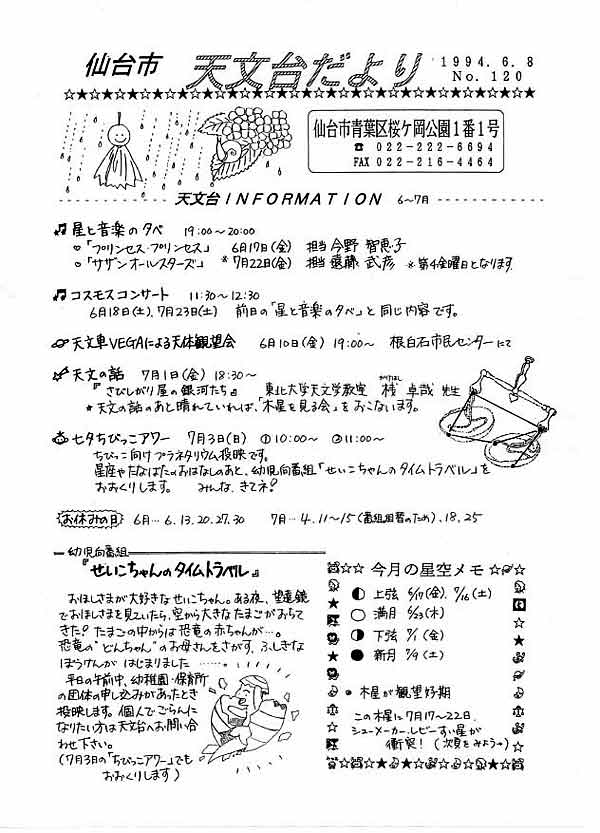 仙台市 天文台だより 1994.6.8
No.120
☆★☆★☆★☆★☆★☆★☆★☆★☆★☆★☆★☆★☆★☆★☆★☆★☆★☆★☆★☆★
仙台市青葉区桜ケ岡公園1番1号
☎ 022-222-6694
FAX 022-216-4464
天文台INFORMATION 6〜7月
♫ 星と音楽の夕べ 19:00〜20:00
○「プリンセス・プリンセス」 6月17日(金) 担当 今野 智恵子
○「サザンオールスターズ」 *7月22日(金) 担当 遠藤 武彦 *第4金曜日となります
♫ コスモスコンサート 11:30〜12:30
6月18日(土)、7月23日(土) 前日の「星と音楽の夕べ」と同じ内容です。
天文車VEGAによる天体観望会 6月10日(金) 19:00〜 根白石市民センターにて
天文の話 7月1日(金) 18:30〜
『さびしがり屋の銀河たち』 東北大学天文学教室 卓哉 先生
★天文の話のあと晴れていれば、「木星を見る会」をおこないます。
七夕ちびっこアワー 7月3日(日) ①10:00〜 ②11:00〜
ちびっこ向けプラネタリウム投映です。
星座やたなばたのおはなしのあと、幼児向番組「せいこちゃんのタイムトラベル」を
おおくりします。 みんな、きてネ?
お休みの日 6月…6.13.20.27.30 7月…4.11〜15(番組組替のため)、18,25
幼児向番組
『せいこちゃんのタイムトラベル』
おほしさまが大好きなせいこちゃん。ある夜、望遠鏡
でおほしさまを見ていたら、空から大きなたまごがおちて
きた? たまごの中からは恐竜の赤ちゃんが…。
恐竜の"どんちゃん"のお母さんをさがす、ふしぎな
ぼうけんが はじまりました ……。
平日の午前中、幼稚園・保育所
の団体の申し込みがあったとき
投映します。個人でごらんに
なりたい方は天文台へお問い合
わせ下さい。
(7月3日の「ちびっこアワー」でも
おおくりします)
今月の星空メモ
上弦 6/17(金)、7/16(土)
満月 6/23(木)
下弦 7/1(金)
新月 7/9(土)
木星が観望好期
この木星に7月17〜22日、
シューメーカー、レビーすい星が
衝突! (次頁をみよう→)